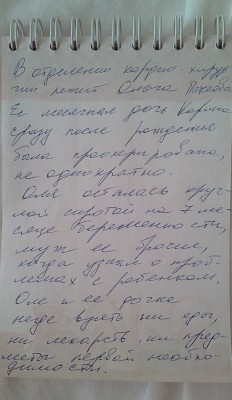 В отделении кардио-хирур
гии лежит Ольга
Ее месячная дочь Карина
сразу после рождение
была прооперирована,
не однократно.
Оля осталась круг-
лой сиротой на 7 ме-
сяце беременности,
муж ее бросил,
когда узнал о проб-
лемах с ребенком.
Оле и ее дочке
негде взять ни еды,
ни лекарств, ни пред-
меты первой необхо-
димости.